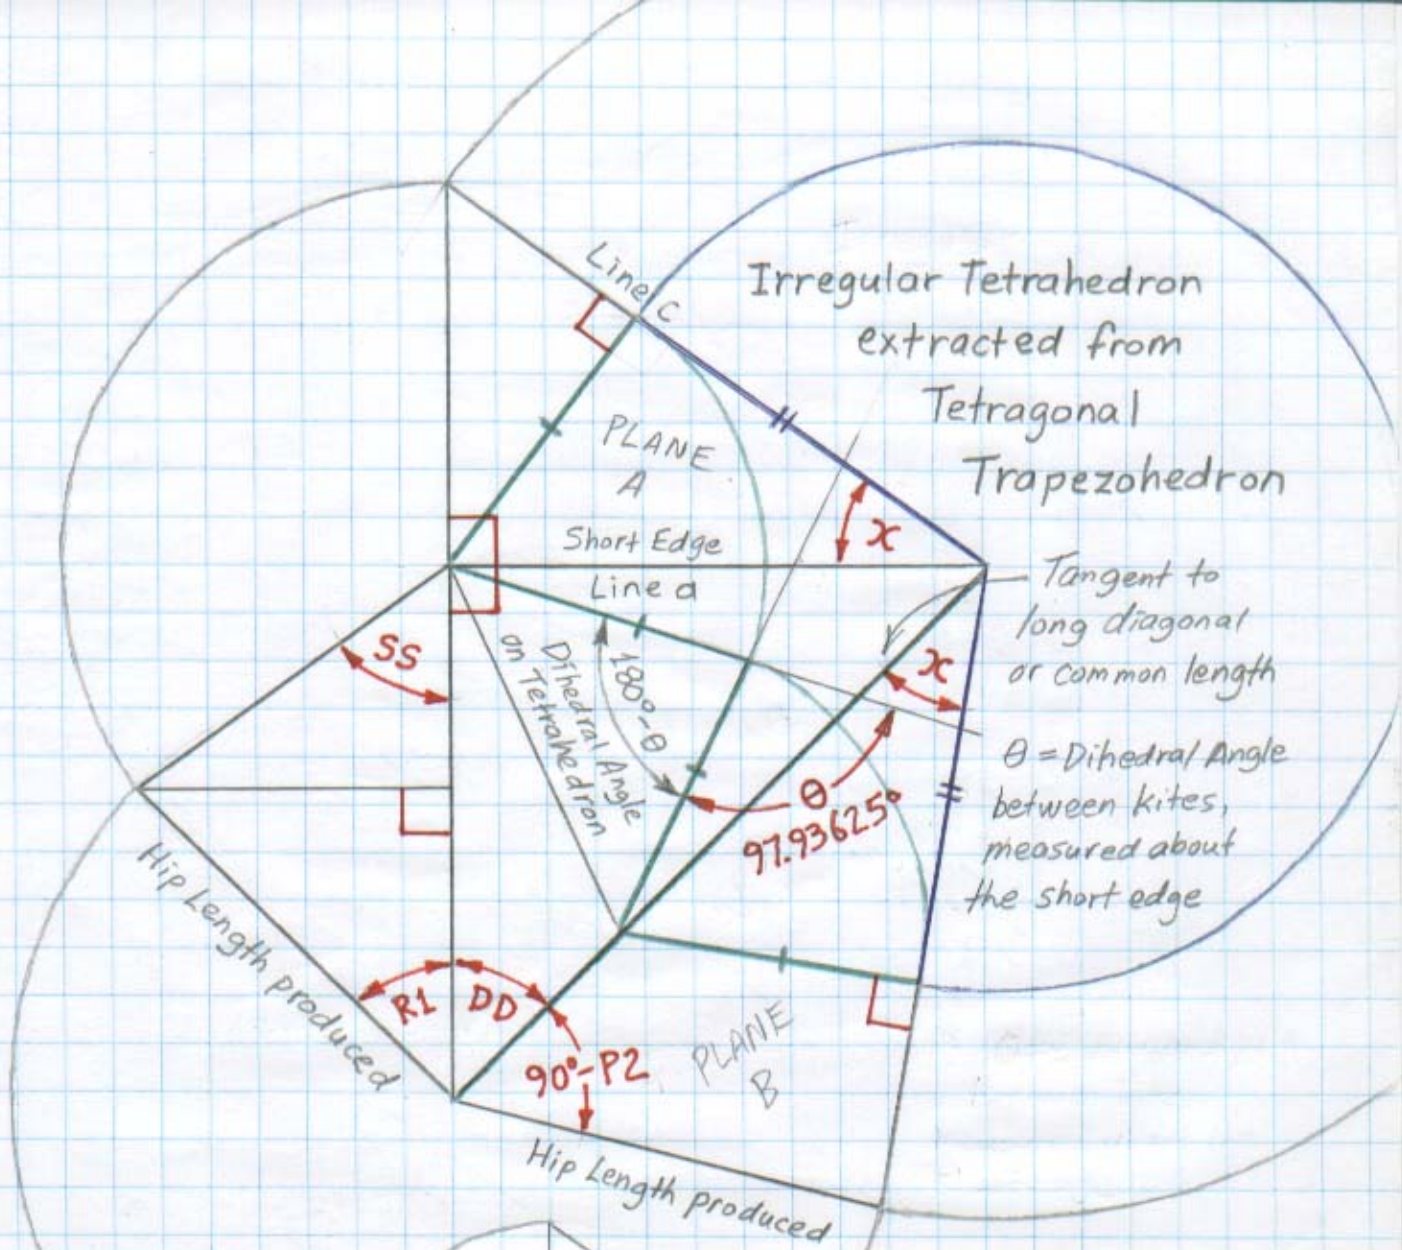 Line c
Irregular Tetrahedron
extracted from
Tetragonal
Trapezohedron
PLANE
A
x
Short Edge
Line a
Tangent to
long diagonal
or common length
SS
x
180°-θ
Dihedral Angle
on Tetrahedron
θ = Dihedral Angle
between kites,
measured about
the short edge
θ
97.93625°
Hip Length produced
R1
DD
90°-P2
PLANE
B
Hip Length produced